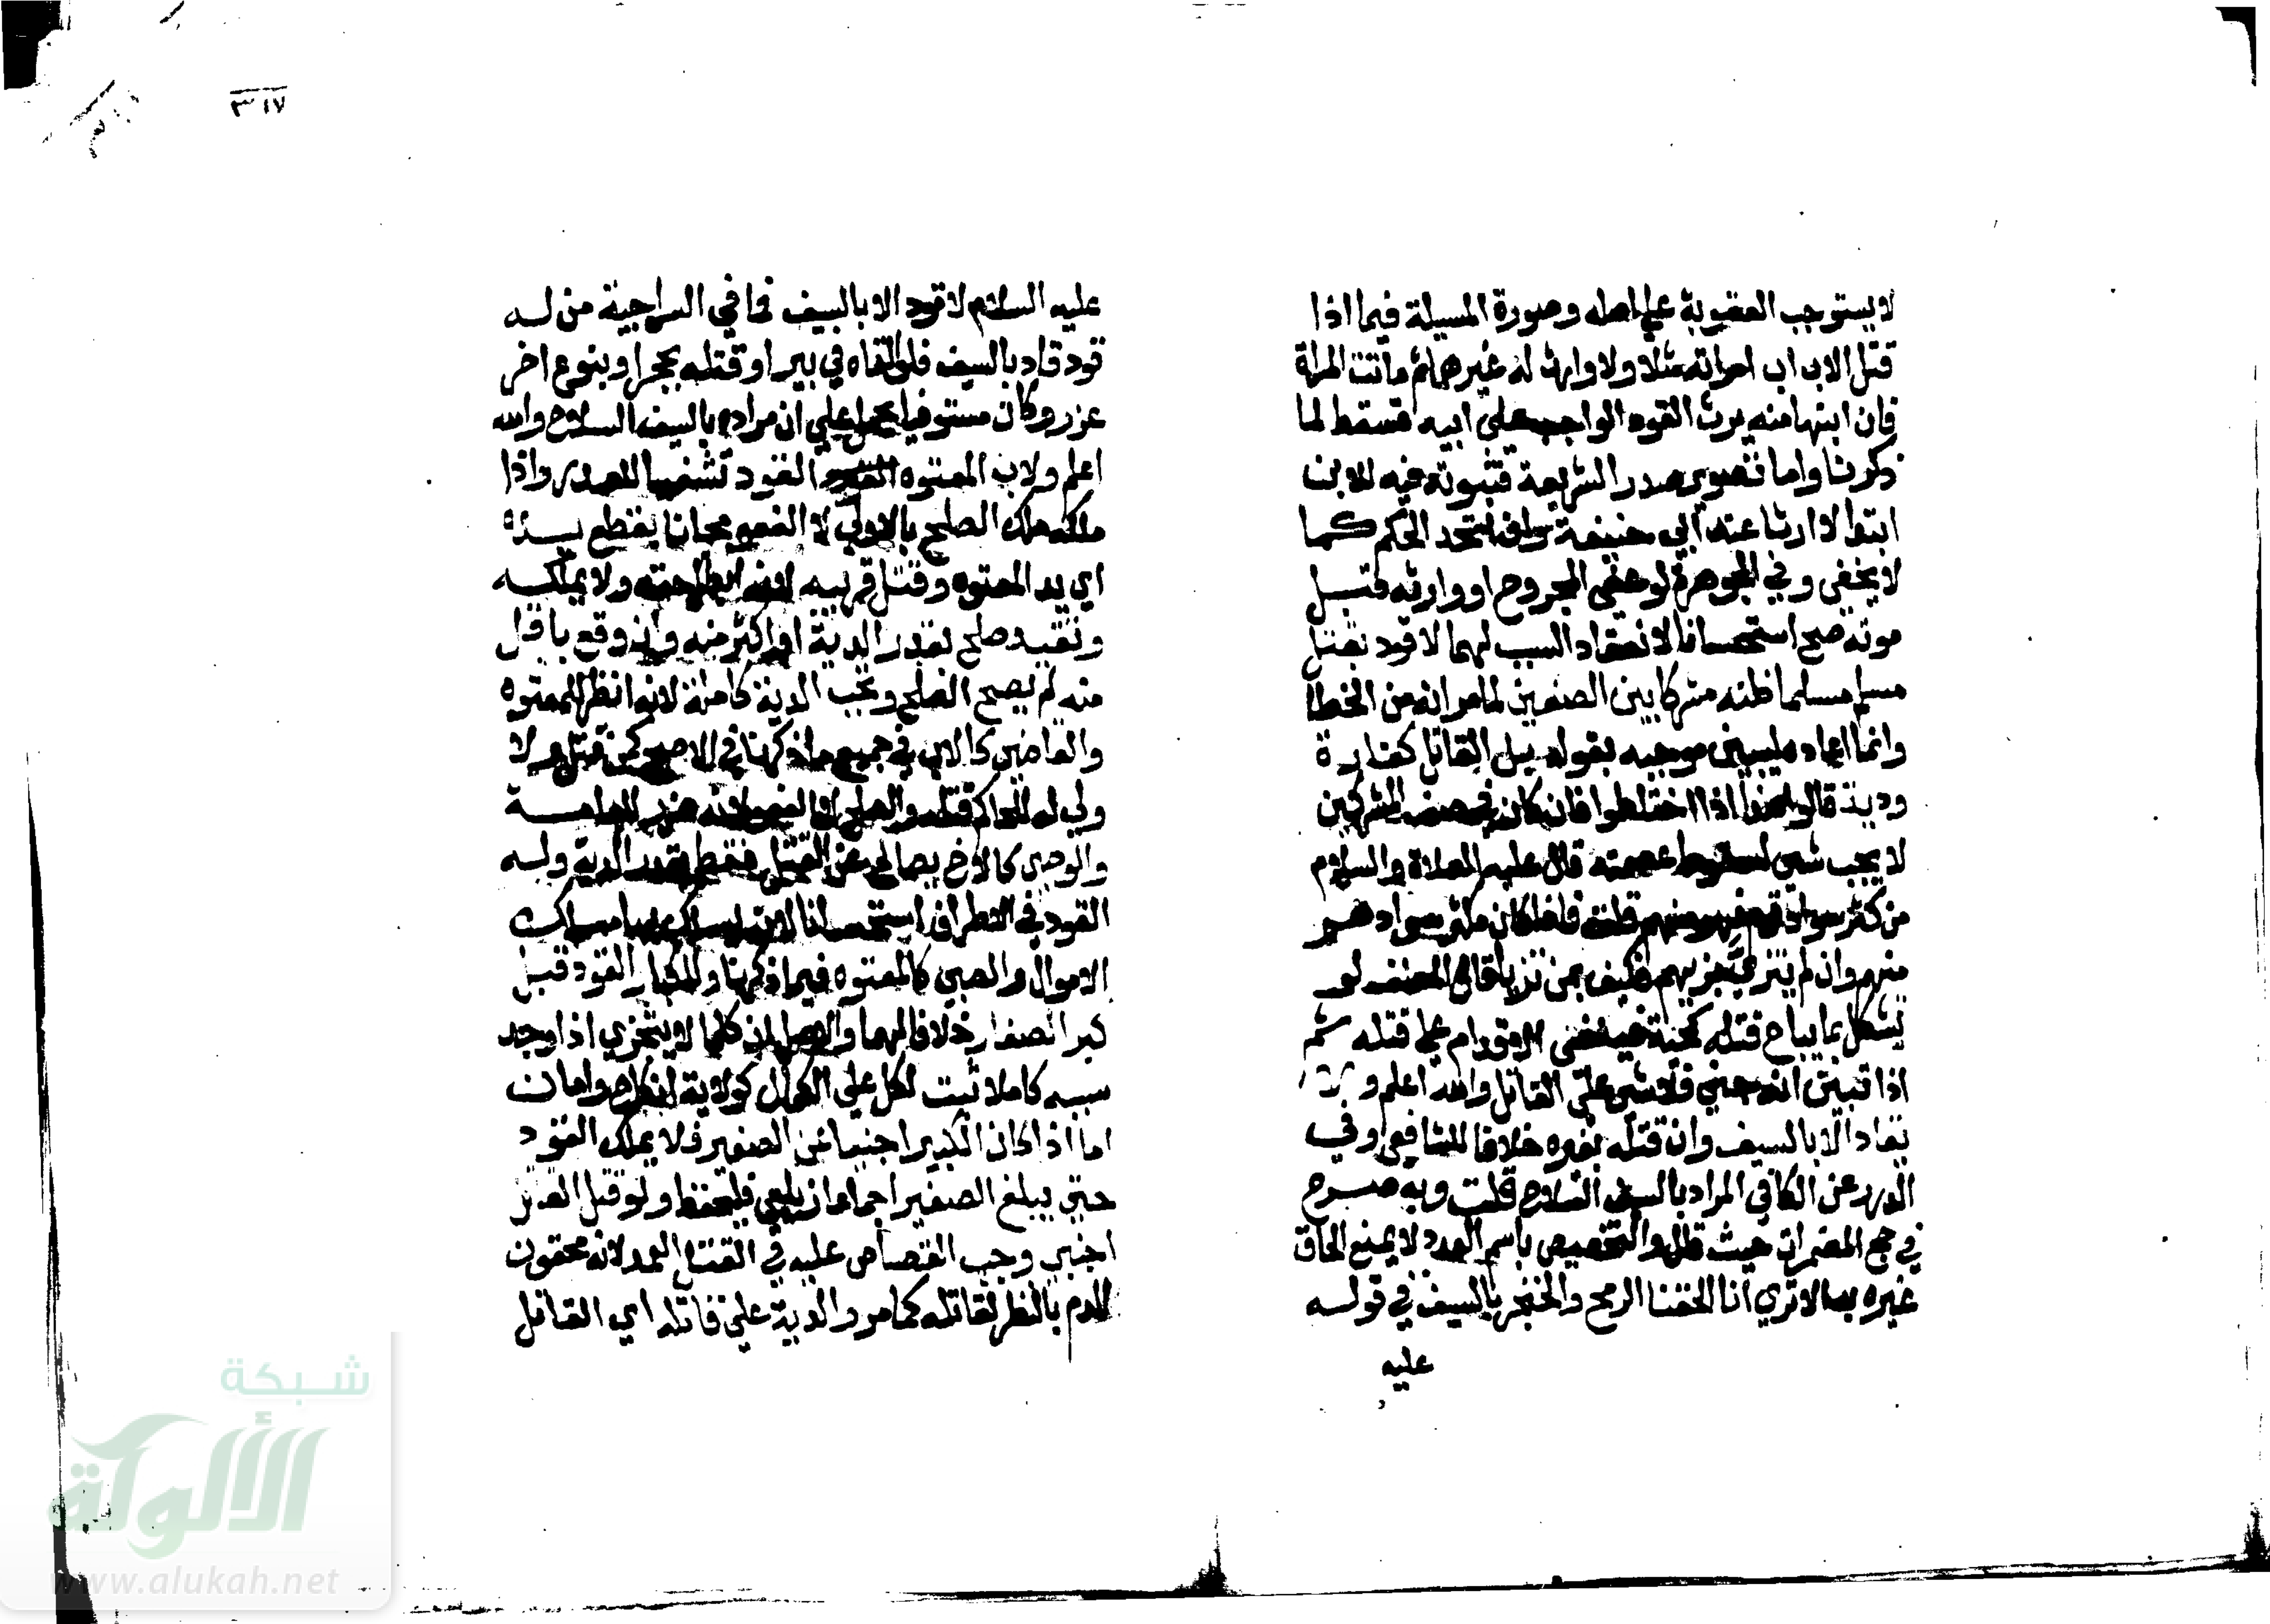 ٣١٧
لا يستوجب العقوبة على اصله وصورة المسيلة فيما اذا
قتل الاب اب امراته مثلا ولا وارث له غيرها ثم ماتت المراة
فان ابنها منه يرث القود الواجب على ابيه فسقط لما
ذكرنا واما تصوير صدر الشريعة فثبوته فيه للابن
ابتدا لا ارثا عند ابي حنيفة وان اتحد الحكم كما
لا يخفى وفي الجوهرة لو عفى المجروح او وارثه قبل
موته صح استحسانا لانعقاد السبب لهما لا قود بقتل
مسلم مسلما ظنه مشركا بين الصفين لما مر انه من الخطا
وانما اعاده ليبين موجبه بقوله بل القاتل كفارة
ودية قالوا هذا اذا اختلطوا فان كان في صف المشركين
لا يجب شي لسقوط عصمته قال عليه الصلاة والسلام
من كثر سواد قوم فهو منهم قلت فاذا كان مكثر سوادهم
منهم وان لم يتزي بزيهم فكيف بمن تزيا قال المصنف لو
تشكل بما يباح قتله كحية فينبغي الاقدام على قتله ثم
اذا تبين انه جني فلا شي على القاتل والله اعلم ولا
يقاد الا بالسيف وان قتله بغيره خلافا للشافعي وفي
الدرر عن الكافي المراد بالسيف السلاح قلت وبه صرح
في حج المضمرات حيث قال والتخصيص باسم العدد لا يمنع الحاق
غيره به الا تري انا الحقنا الرمح والخنجر بالسيف في قوله
عليه
عليه السلام لا قود الا بالسيف فما في السراجية من له
قود قاد بالسيف فلو القاه في بير او قتله بحجر او بنوع اخر
عزر وكان مستوفيا يحمل على ان مراده بالسيف السلاح والله
اعلم ولاب المعتوه القود تشفيا للصدر واذا
ملكه ملك الصلح بالاولى لا العفو مجانا بقطع يده
اي يد المعتوه وقتل قريبه لانه ابطال حقه ولا يملكه
وتقيد صلح بقدر الدية او اكثر منه وان وقع باقل
منه لم يصح الصلح وتجب الدية كاملة لانه انظر للمعتوه
والقاضي كالاب في جميع ما ذكرنا في الاصح كمن قتل ولا
ولي له للحاكم قتله والصلح لا العفو لانه ضرر للعامة
والوصي كالاخ يصالح عن القتل فقط بقدر الدية وله
القود في الاطراف استحسانا لانه يسلك بها مسلك
الاموال والصبي كالمعتوه فيما ذكرنا وللكبار القود قبل
كبر الصغار خلافا لهما والاصل ان كلما لا يتجزي اذا وجد
سببه كاملا ثبت لكل على الكمال كولاية انكاح وامان
اما اذا كان الكبير اجنبيا عن الصغير فلا يملك القود
حتي يبلغ الصغير اجماعا زيلعي فليحفظ ولو قتل القاتل
اجنبي وجب القصاص عليه في القتل العمد لانه محقون
الدم بالنظر لقاتله كما مر والدية على قاتله اي القاتل
شبكة
الألوكة
www.alukah.net